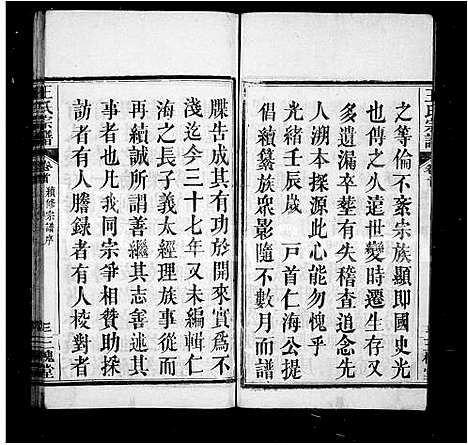 之等倫不紊宗族顯即國史光
也傳之久遠世變時遷生存又
多遺漏卒塋有失稽查追念先
人溯本探源此心愧乎
光緒壬辰歲 戶祖仁海公提
倡續纂族眾影隨不數月而譜
牒告成其有功於開來實為不
淺迄今三十七年又未編輯仁
海之長子義太經理族事從而
再續誠所謂善繼其志善述其
事者也凡我同宗爭相贊助採
訪者有人謄錄者有人校對者
王氏宗譜
卷首
續修宗譜序
三
三槐堂